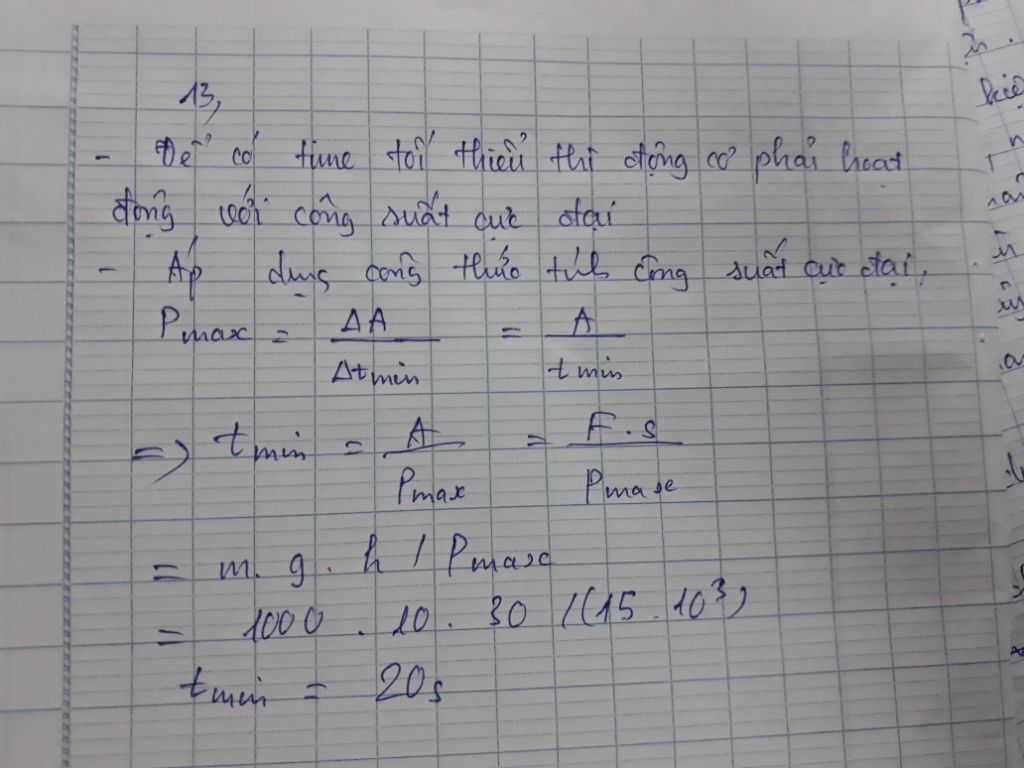 13,
- Để có time tối thiểu thì động cơ phải hoạt
động với công suất cực đại
- Áp dụng công thức tính công suất cực đại,
Pmax = ΔA / Δtmin = A / tmin
=> tmin = A / Pmax = F.s / Pmax
= m.g.h / Pmax
= 1000.10.30 / (15.10³)
tmin = 20s